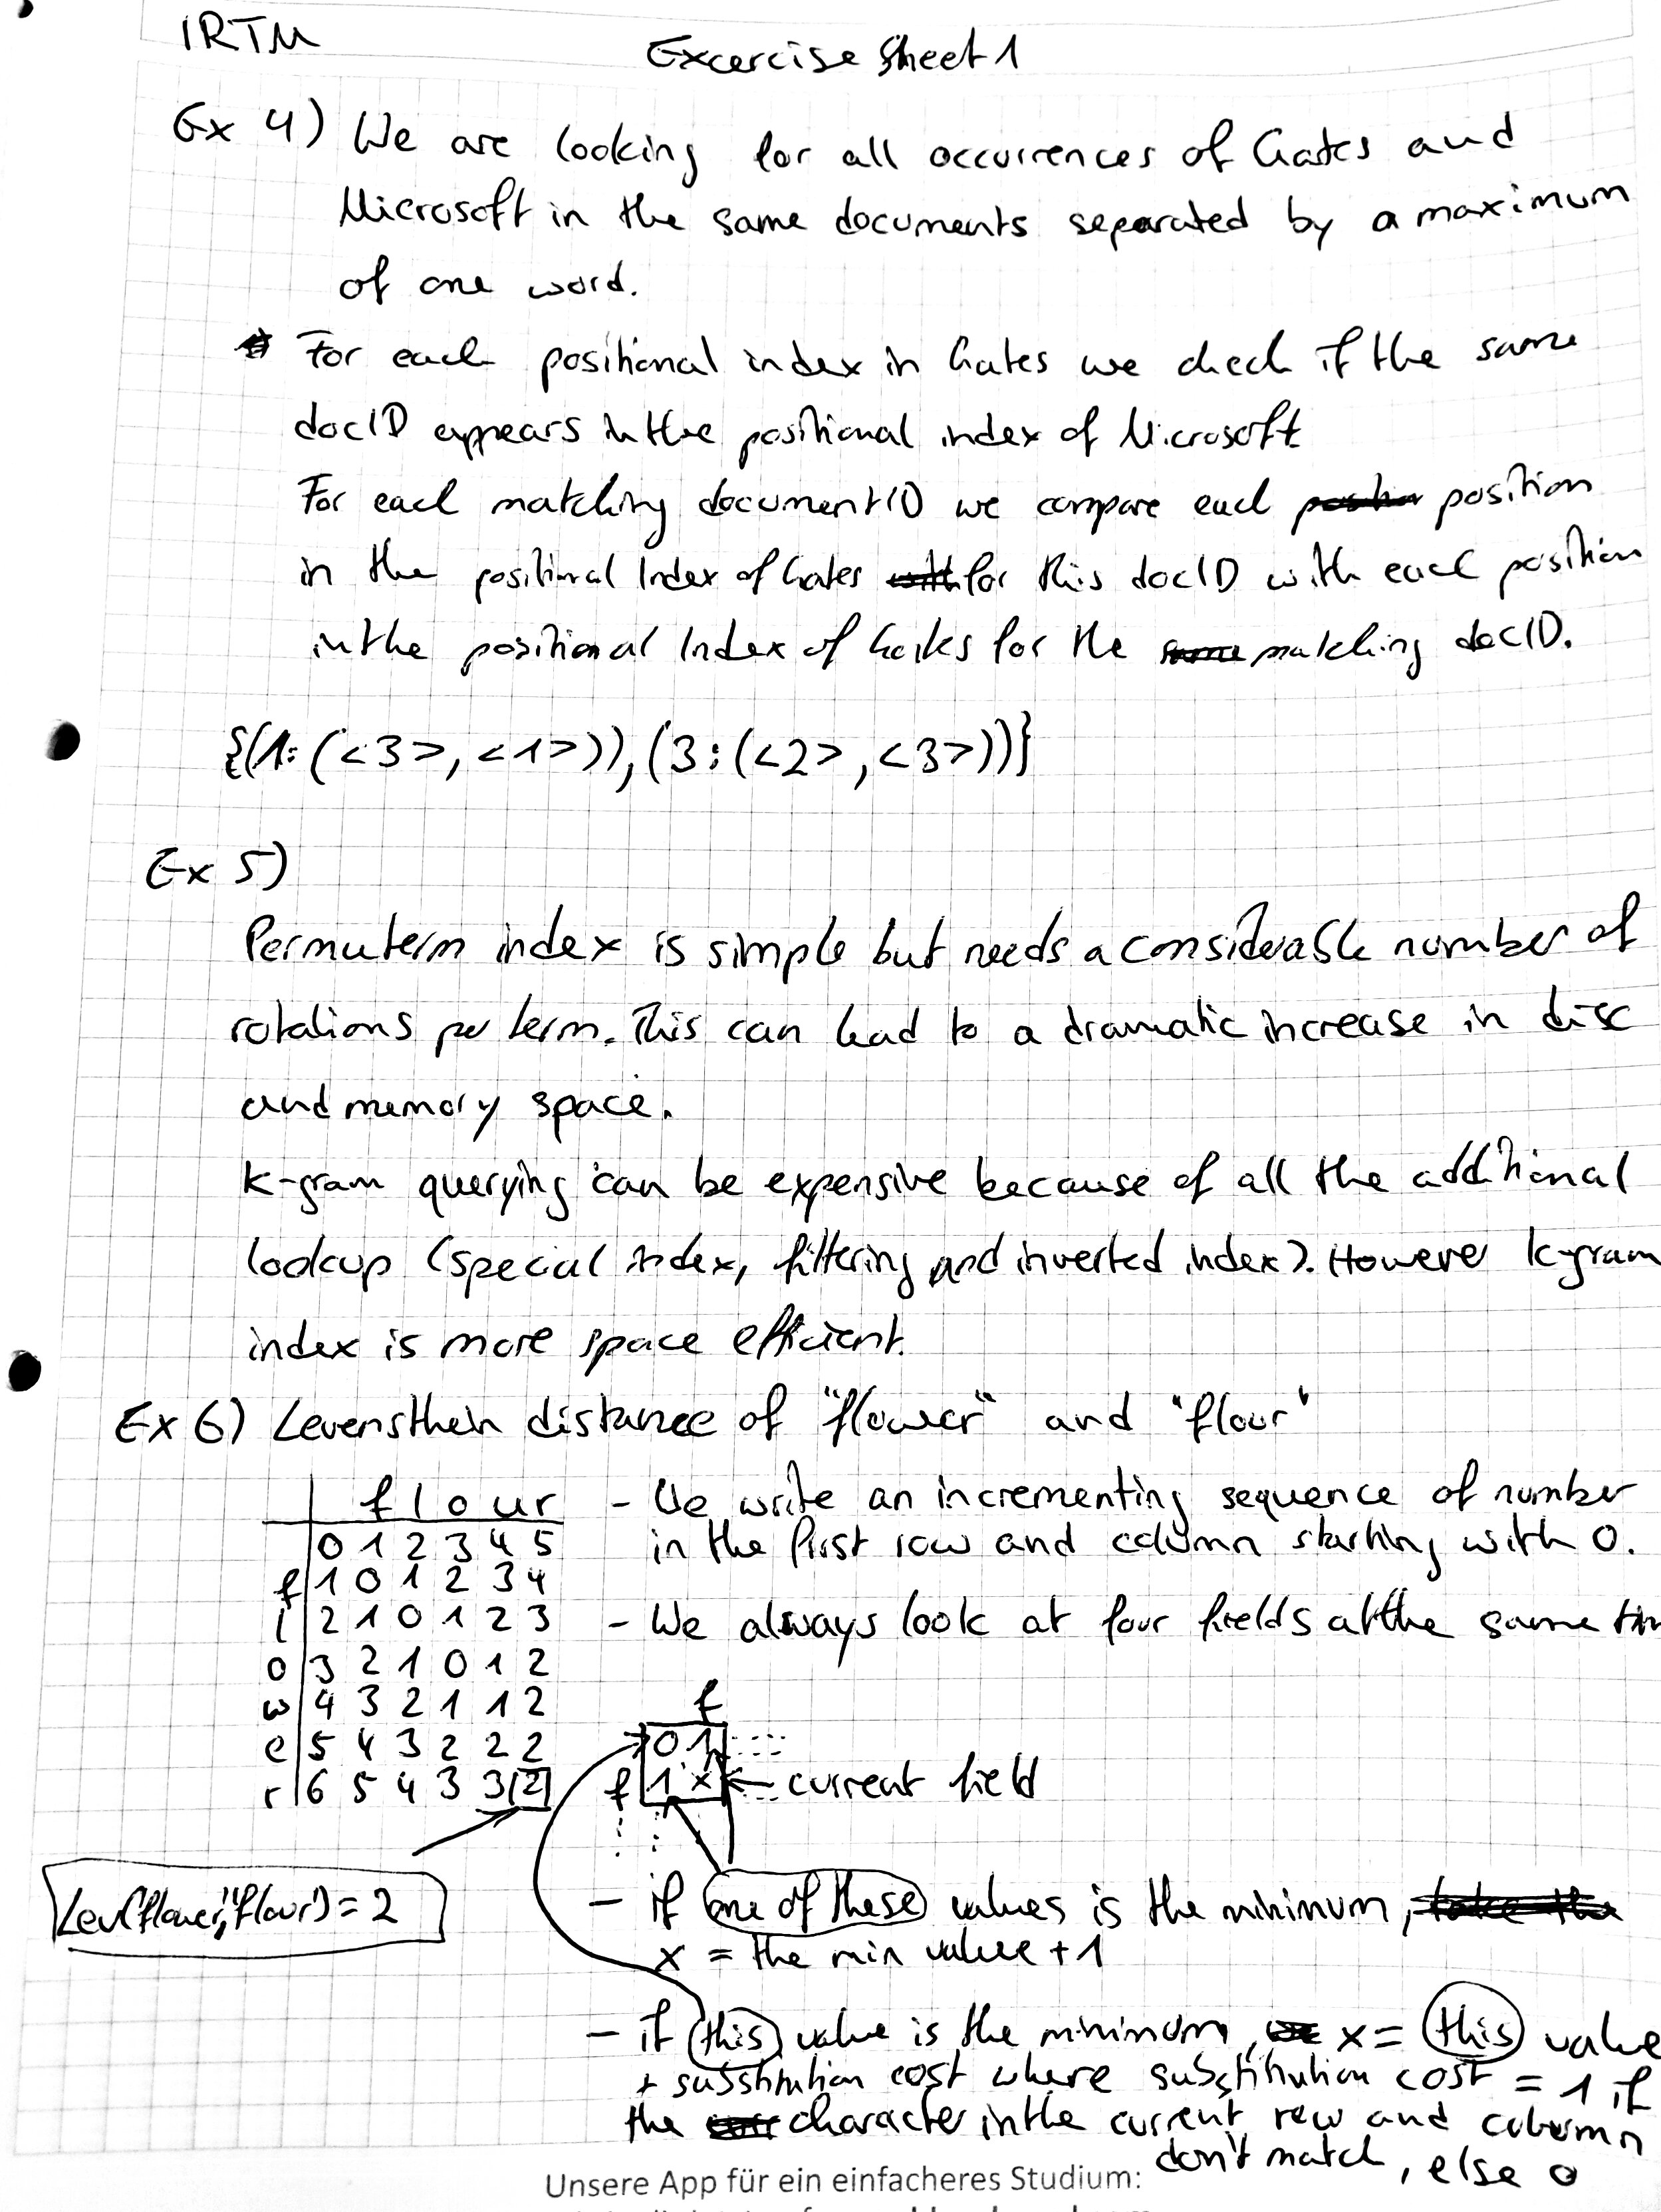 IRTM
Excercise Sheet 1
Ex 4) We are looking for all occurrences of Gates and
Microsoft in the same documents separated by a maximum
of one word.
For each positional index in Gates we check if the same
docID appears in the positional index of Microsoft
For each matching documentID we compare each position
in the positional Index of Gates for this docID with each position
in the positional Index of Gates for the matching docID.
{(1:(<3>,<1>)),(3:(<2>,<3>))}
Ex 5)
Permuterm index is simple but needs a considerable number of
rotations per term. This can lead to a dramatic increase in disc
and memory space.
K-gram querying can be expensive because of all the additional
lookup (special index, filtering and inverted index). However k-gram
index is more space efficient.
Ex 6) Levensthein distance of "flower" and "flour"
f l o u r
0 1 2 3 4 5
f 1 0 1 2 3 4
l 2 1 0 1 2 3
o 3 2 1 0 1 2
w 4 3 2 1 1 2
e 5 4 3 2 2 2
r 6 5 4 3 3 2
Lev("flower","flour") = 2
- We write an incrementing sequence of number
in the first row and column starting with 0.
- We always look at four fields at the same tim
f
0 1
f 1 x ← current field
- if one of these values is the minimum,
x = the min value + 1
- if this value is the minimum, x = this value
+ substitution cost where substitution cost = 1 if
the character in the current row and column
don't match, else 0
Unsere App für ein einfacheres Studium: